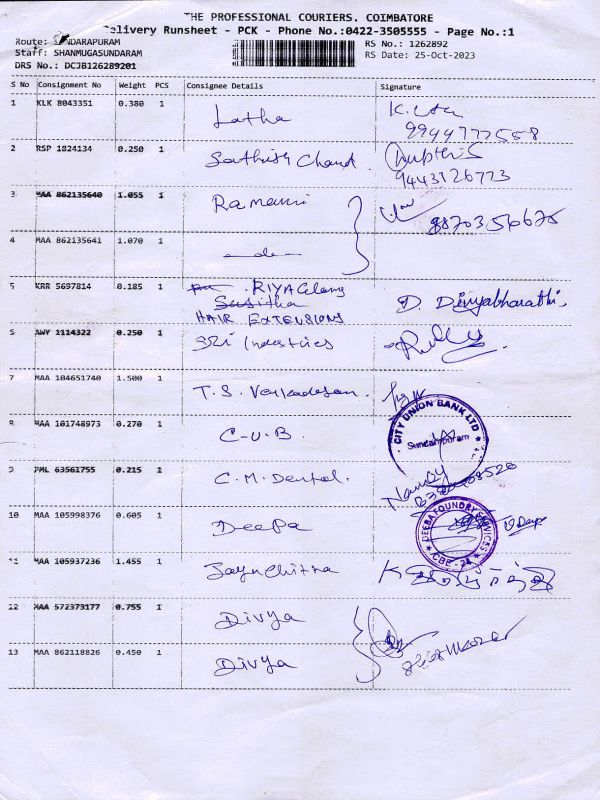 THE PROFESSIONAL COURIERS, COIMBATORE
Delivery Runsheet - PCK - Phone No.:0422-3505555 - Page No.:1
Route: SUNDARAPURAM
Staff: SHANMUGASUNDARAM
DRS No.: DCJB126289201
RS No.: 1262892
RS Date: 25-Oct-2023
S No Consignment No Weight PCS Consignee Details Signature
1 KLK 8043351 0.380 1 Latha
9944977558
2 RSP 1824134 0.250 1 Sathish Chand.
9443126773
3 MAA 862135640 1.055 1 Ramani
8870356675
4 MAA 862135641 1.070 1 —do—
5 KRR 5697814 0.185 1 RIYA
Susitha D. Divyabharathi
HAIR EXTENSIONS
6 AWY 1114322 0.250 1 Sri Industries
7 MAA 104651740 1.500 1 T. S. Venkadesan.
8 MAA 101748973 0.270 1 C-U-B
CITY UNION BANK LTD
Sundarapuram
9 PML 63561755 0.215 1 C.M. Dental. Nancy
10 MAA 105998376 0.605 1 Deepa
DEEBA FOUNDRY SERVICES
CBE - 24
11 MAA 105937236 1.455 1 Jayachitra
12 MAA 572373177 0.755 1 Divya
13 MAA 862118826 0.450 1 Divya